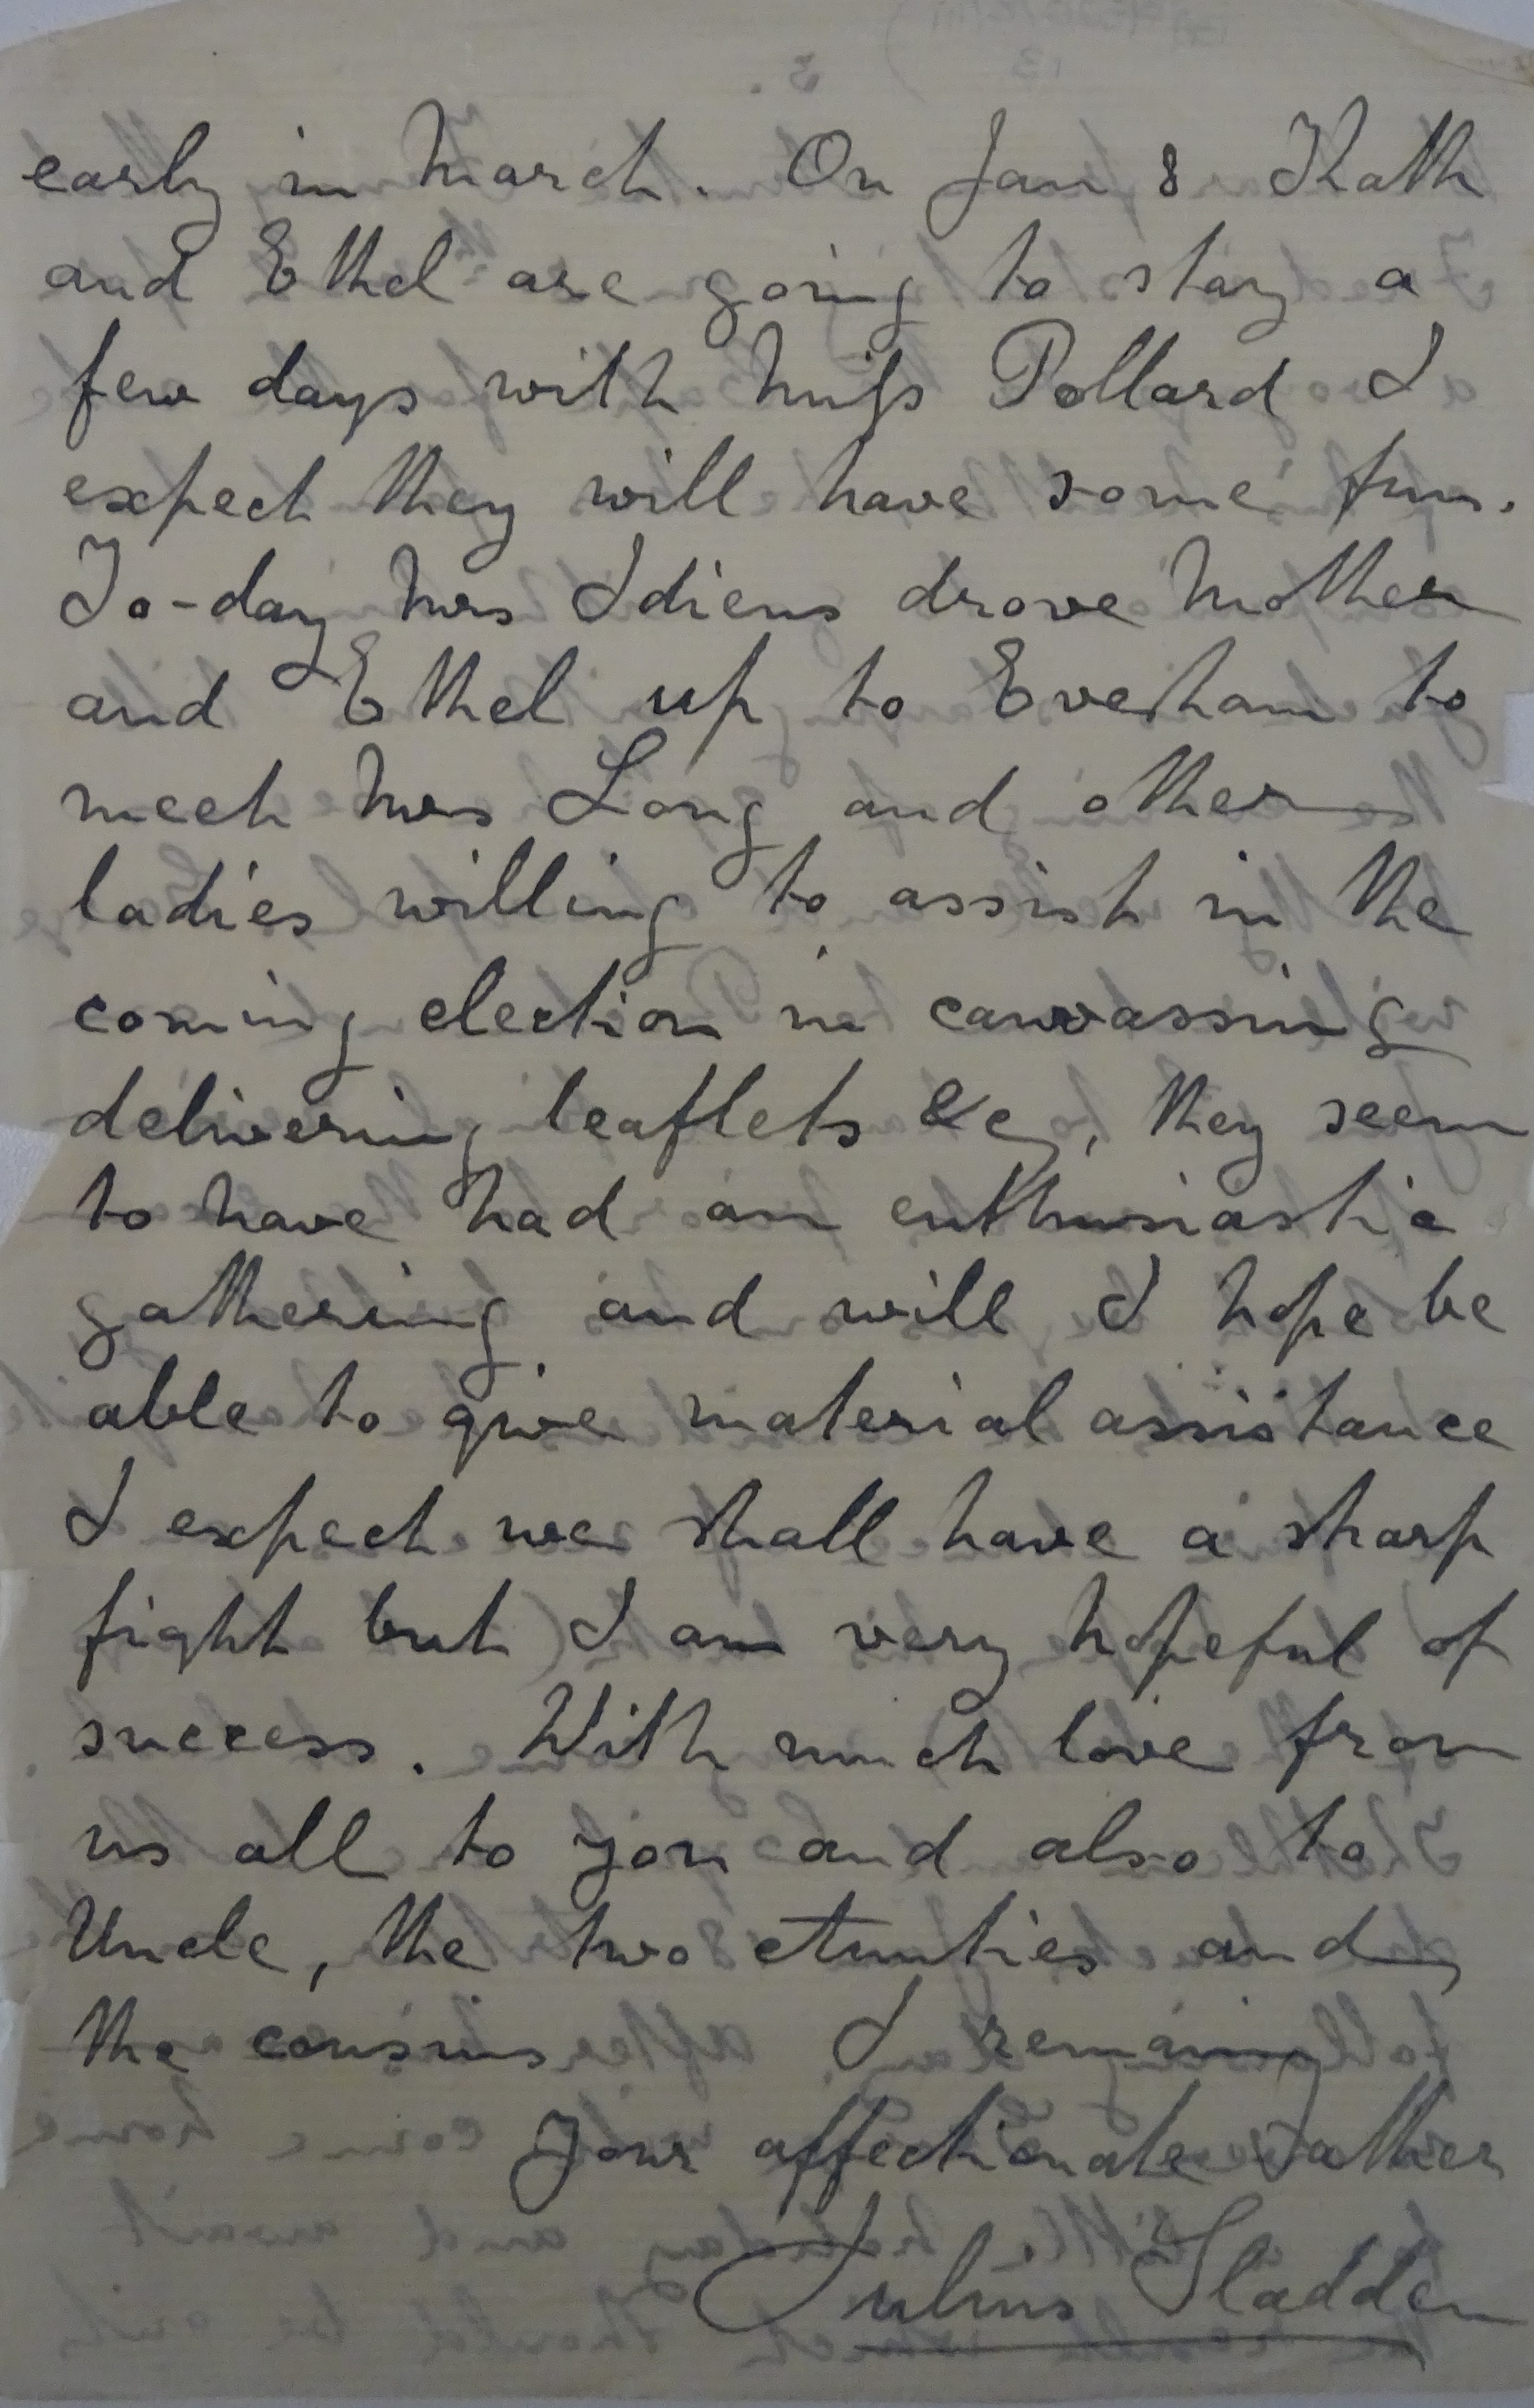 early in March. On Jan 8 Kath
and Ethel are going to stay a
few days with Miss Pollard I
expect they will have some fun.
To-day Mrs Idiens drove Mother
and Ethel up to Evesham to
meet Mrs Long and other
ladies willing to assist in the
coming election in canvassing
delivering leaflets &c, they seem
to have had an enthusiastic
gathering and will I hope be
able to give material assistance
I expect we shall have a sharp
fight but I am very hopeful of
success. With much love from
us all to you and also to
Uncle, the two Aunties and
the cousins I remain
Your affectionate Father
Julius Sladden